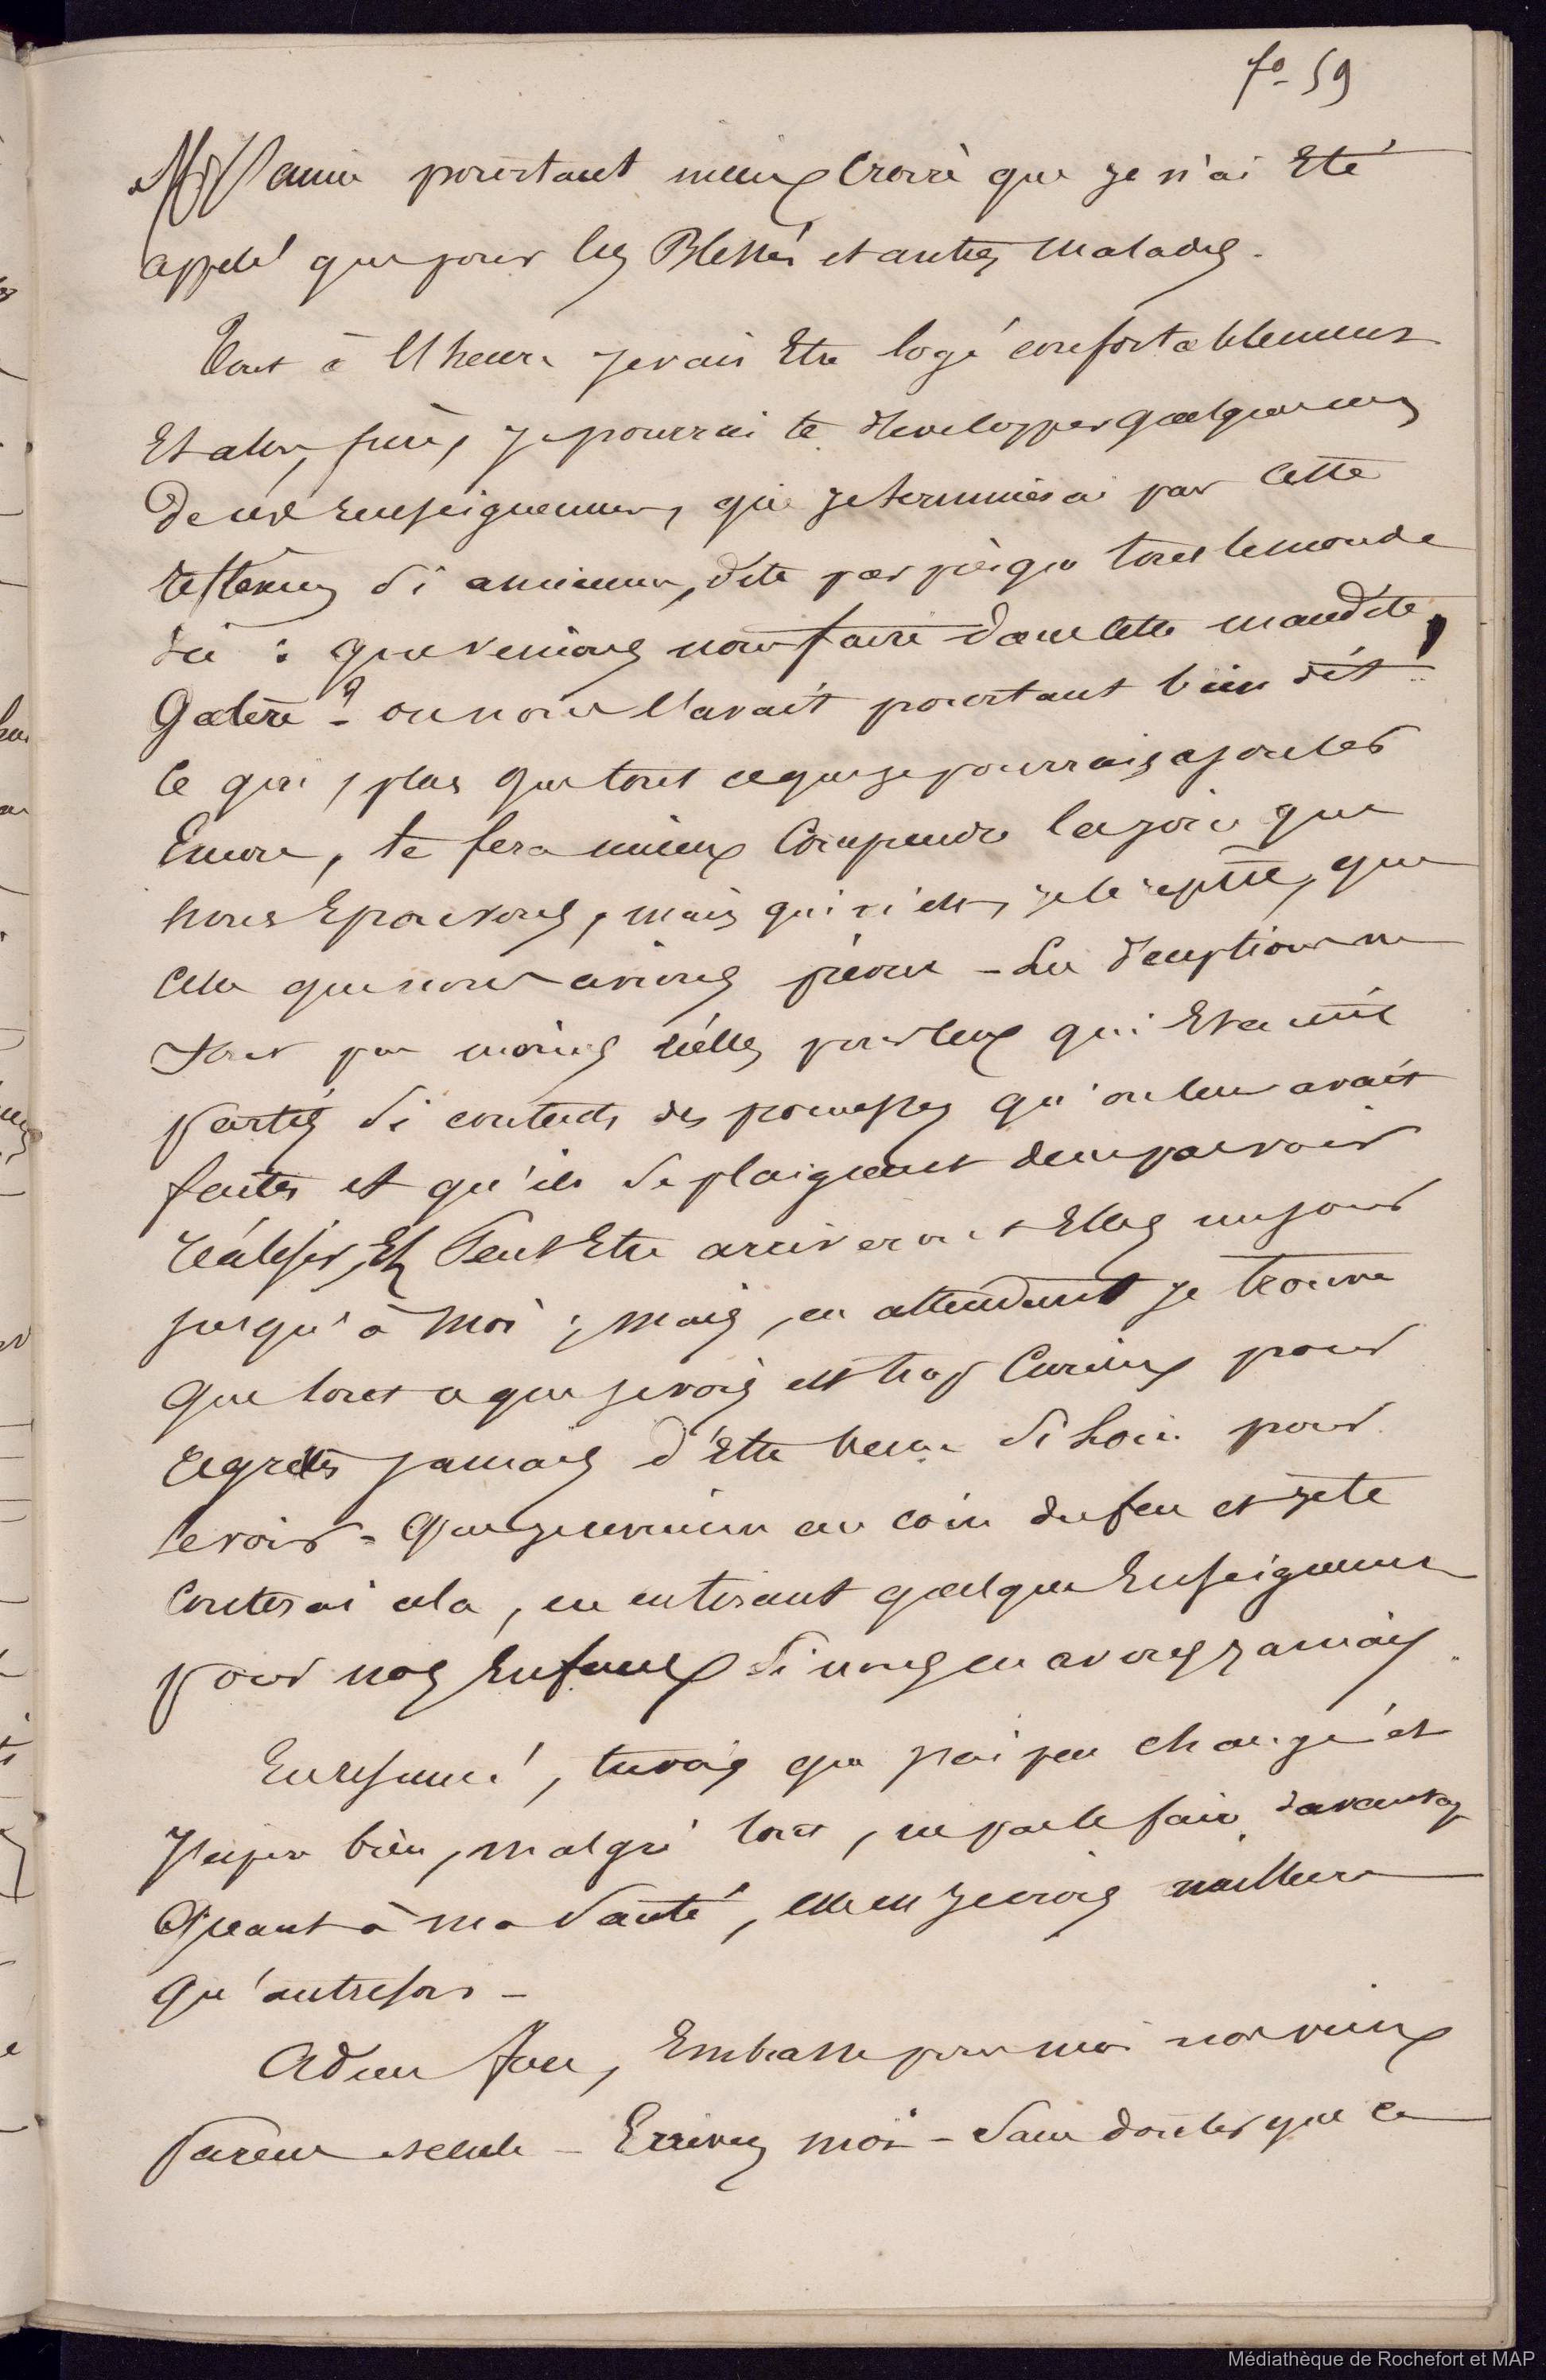 fo- 59
J'aime pourtant mieux croire que je n'ai Eté
appelé que pour les Blessés et autres malades.
Tout à l'heure je vais Etre logé confortablement
Et alors, frère, je pourrai te développer quelques uns
de ces Enseignemens, que je terminerai par cette
reflexion si ancienne, dite par presque tout le monde
ici : que venions nous faire dans cette maudite
Galère ? - on nous l'avait pourtant bien dit !
Ce qui, plus que tout ce que je pourrais ajouter
Encore, te fera mieux Comprendre la joie que
nous Eprouvons, mais qui n'est, je le repette, que
Celle que nous avions prévue - Les déceptions ne
sont pas moins réelles pour ceux qui Etaient
partis si contents des promesses qu'on leur avait
faites et qu'ils se plaignent de ne pas voir
réaliser, Et Peut Etre arriveront Elles un jour
jusqu'à moi ; mais, en attendant je trouve
que tout ce que je vois est trop Curieux pour
regretter jamais d'Etre venu si Loin pour
le voir - Que je revienne au coin du feu et je te
Conterai cela, en en tirant quelques Enseignemens
pour nos Enfans si nous en avons jamais.
En resumé, tu vois que j'ai peu changé et
J'espère bien, malgré tout, ne pas le faire davantage
Quant à ma Santé, elle est je crois meilleure
qu'autrefois -
Adieu frère, Embrasse pour moi nos vieux
Parens - Ecrivez moi - Sans douter que ce
Médiathèque de Rochefort et MAP